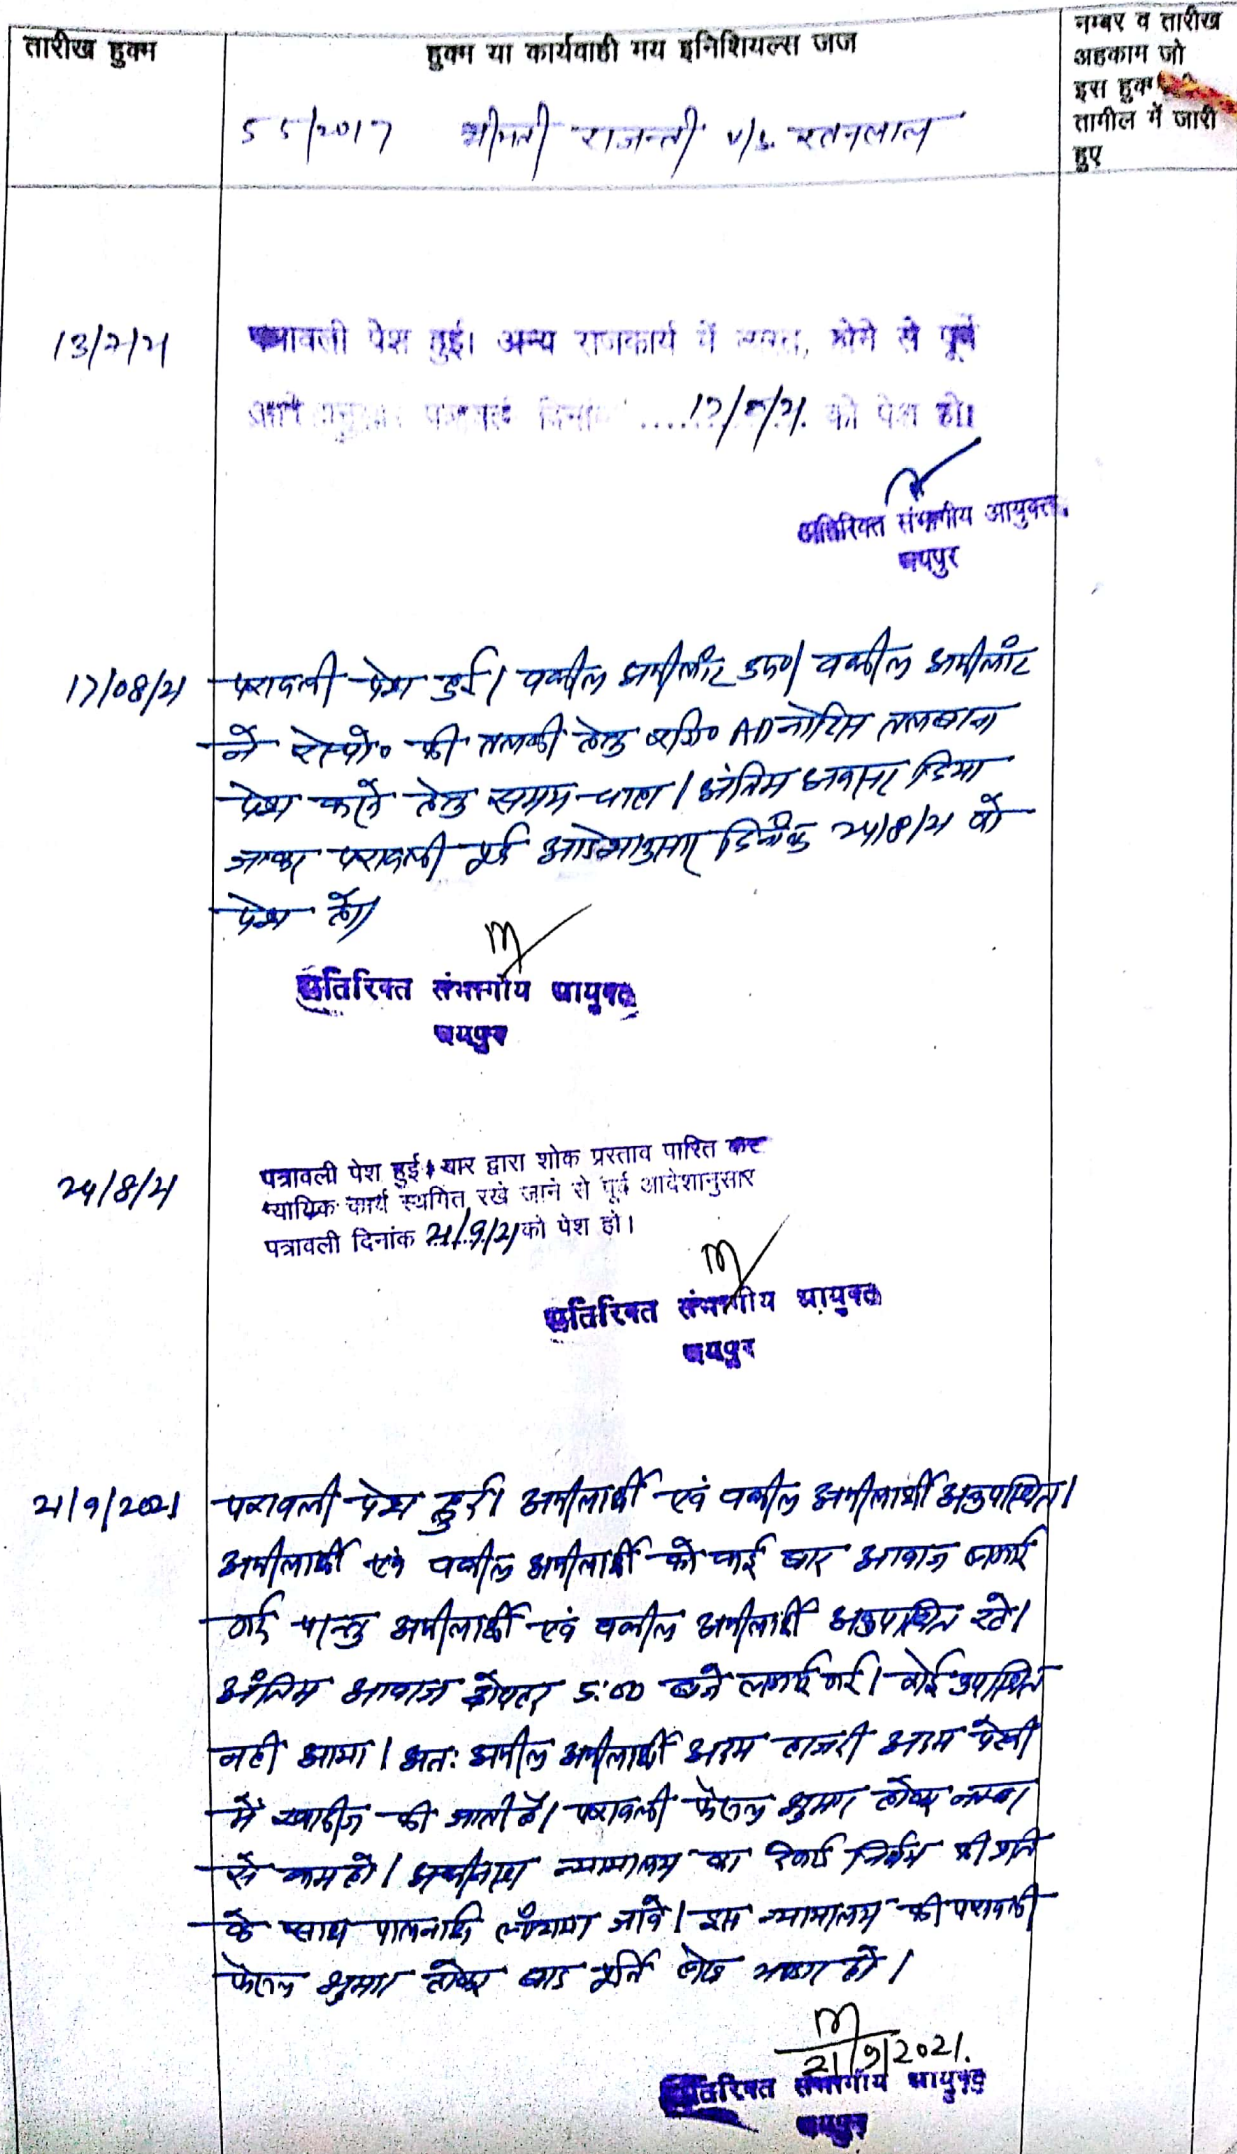 तारीख हुक्म
हुक्म या कार्यवाही मय इनिशियल्स जज
नम्बर व तारीख
अहकाम जो
इस हुक्म
तामील में जारी
हुए
55/2017 श्रीमती राजन्ती v/s. रतनलाल
13/7/21
पत्रावली पेश हुई। अन्य राजकार्य में व्यस्त, होने से पूर्व
पत्रावली को पेश हो।
अतिरिक्त संभागीय आयुक्त
जयपुर
17/08/21
पत्रावली पेश हुई। वकील अपीलांट उप०। वकील अपीलांट
ने रेस्पो० की तलबी हेतु रजि० AD नोटिस तलबाना
पेश करने हेतु समय चाहा। अंतिम अवसर दिया
जाकर पत्रावली पूर्व आदेशानुसार दिनांक 24/8/21 को
पेश हो।
अतिरिक्त संभागीय आयुक्त
जयपुर
24/8/21
पत्रावली पेश हुई। बार द्वारा शोक प्रस्ताव पारित कर
न्यायिक कार्य स्थगित रखे जाने से पूर्व आदेशानुसार
पत्रावली दिनांक 21/9/21 को पेश हो।
अतिरिक्त संभागीय आयुक्त
जयपुर
21/9/2021
पत्रावली पेश हुई। अपीलार्थी एवं वकील अपीलार्थी अनुपस्थित।
अपीलार्थी एवं वकील अपीलार्थी को कई बार आवाज लगाई
गई परन्तु अपीलार्थी एवं वकील अपीलार्थी अनुपस्थित रहे।
अंतिम आवाज दोपहर 5:00 बजे लगाई गई। कोई उपस्थित
नहीं आया। अतः अपील अपीलार्थी अदम हाजरी अदम पैरवी
में खारीज की जाती है। पत्रावली फैसल शुमार होकर नम्बर
से कम हो। अधीनस्थ न्यायालय का रिकार्ड निर्णय की प्रति
के साथ पालनार्थ लौटाया जावे। इस न्यायालय की पत्रावली
फैसल शुमार होकर बाद पूर्ति लेख भण्डार हो।
21/9/2021.
अतिरिक्त संभागीय आयुक्त
जयपुर